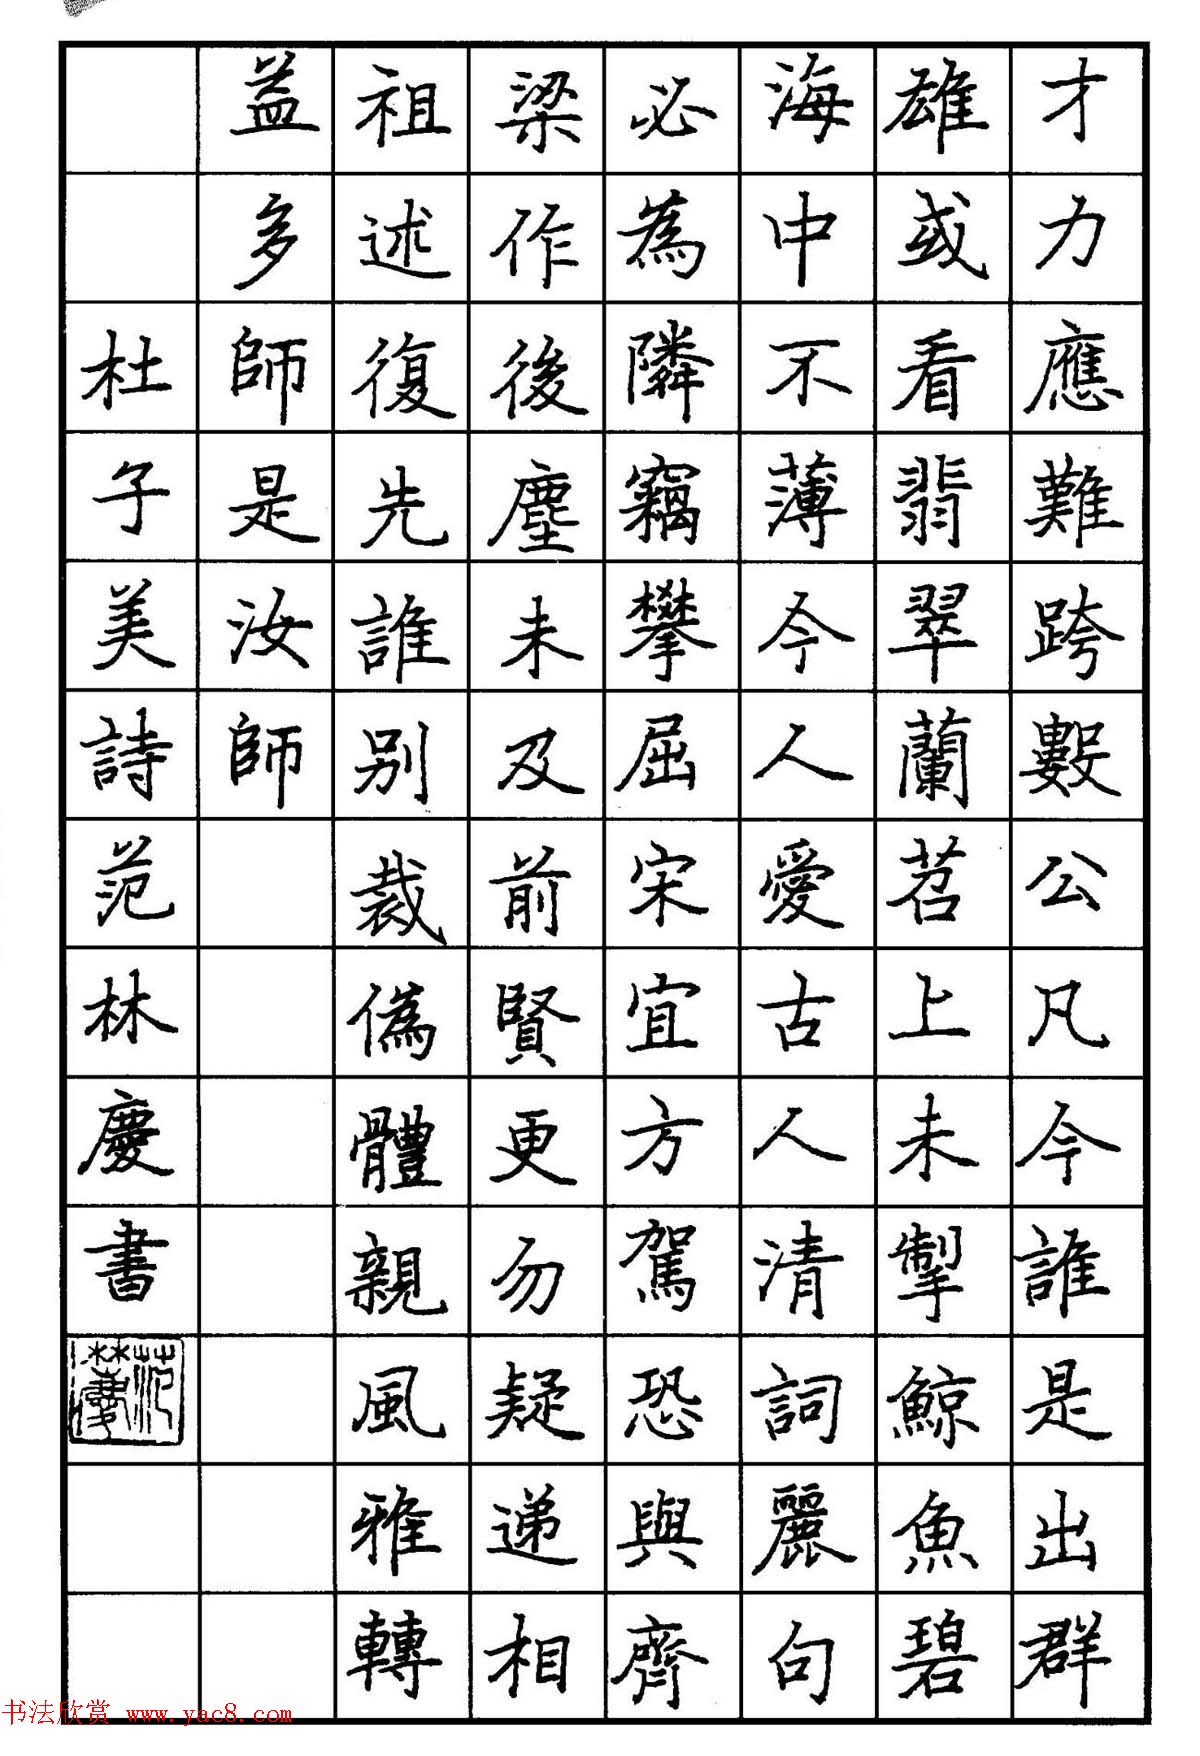 才力應難跨數公凡今誰是出群
雄或看翡翠蘭苕上未掣鯨魚碧
海中不薄今人愛古人清詞麗句
必為隣竊攀屈宋宜方駕恐與齊
梁作後塵未及前賢更勿疑遞相
祖述復先誰別裁偽體親風雅轉
益多師是汝師
杜子美詩范林慶書
范林慶
书法欣赏 www.yac8.com